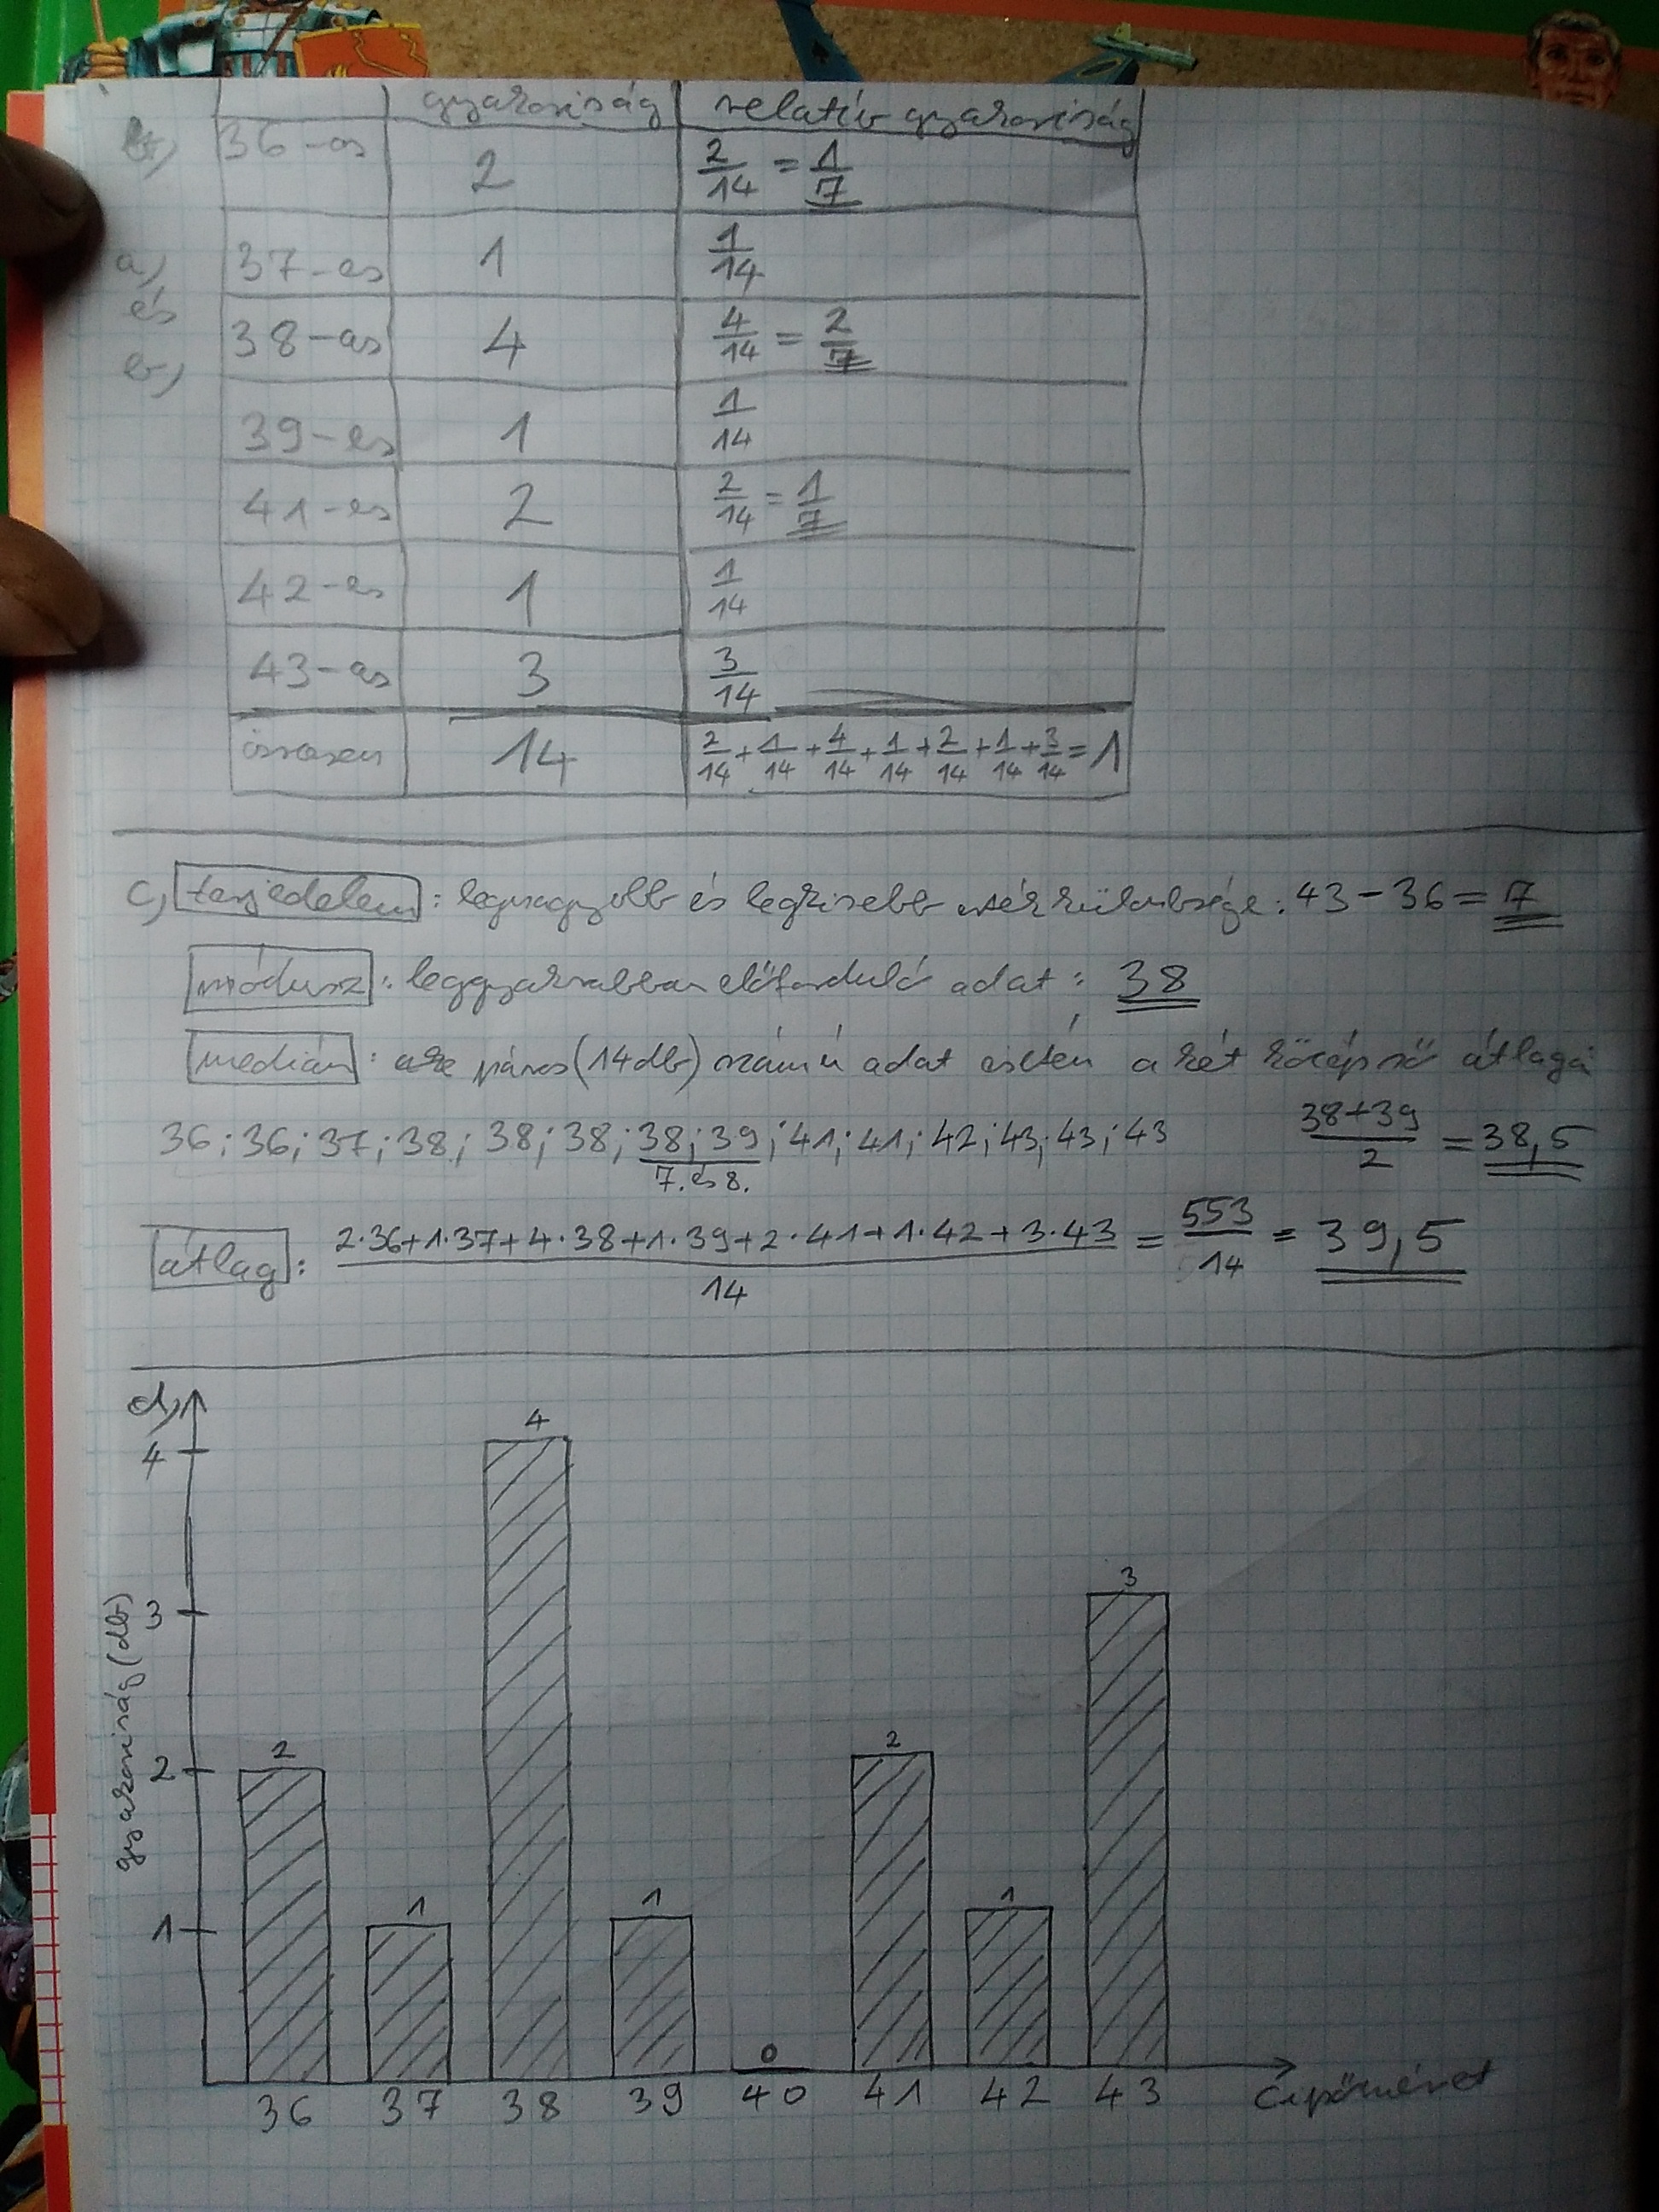 gyakoriság relatív gyakoriság
b,) 36-os 2 2/14 = 1/7
a,) 37-es 1 1/14
és
b,) 38-as 4 4/14 = 2/7
39-es 1 1/14
41-es 2 2/14 = 1/7
42-es 1 1/14
43-as 3 3/14
összesen 14 2/14 + 1/14 + 4/14 + 1/14 + 2/14 + 1/14 + 3/14 = 1
c,) terjedelem: legnagyobb és legkisebb különbsége: 43 - 36 = 7
módusz: leggyakrabban előforduló adat: 38
medián: páros (14 db) számú adat esetén a két középső átlaga
36; 36; 37; 38; 38; 38; 38; 39; 41; 41; 42; 43; 43; 43 (38+39)/2 = 38,5
7. és 8.
átlag: (2·36+1·37+4·38+1·39+2·41+1·42+3·43)/14 = 553/14 = 39,5
d,)
4
4
3
3
2
2
2
1
1
1
1
0
gyakoriság (db)
36 37 38 39 40 41 42 43 Cipőméret